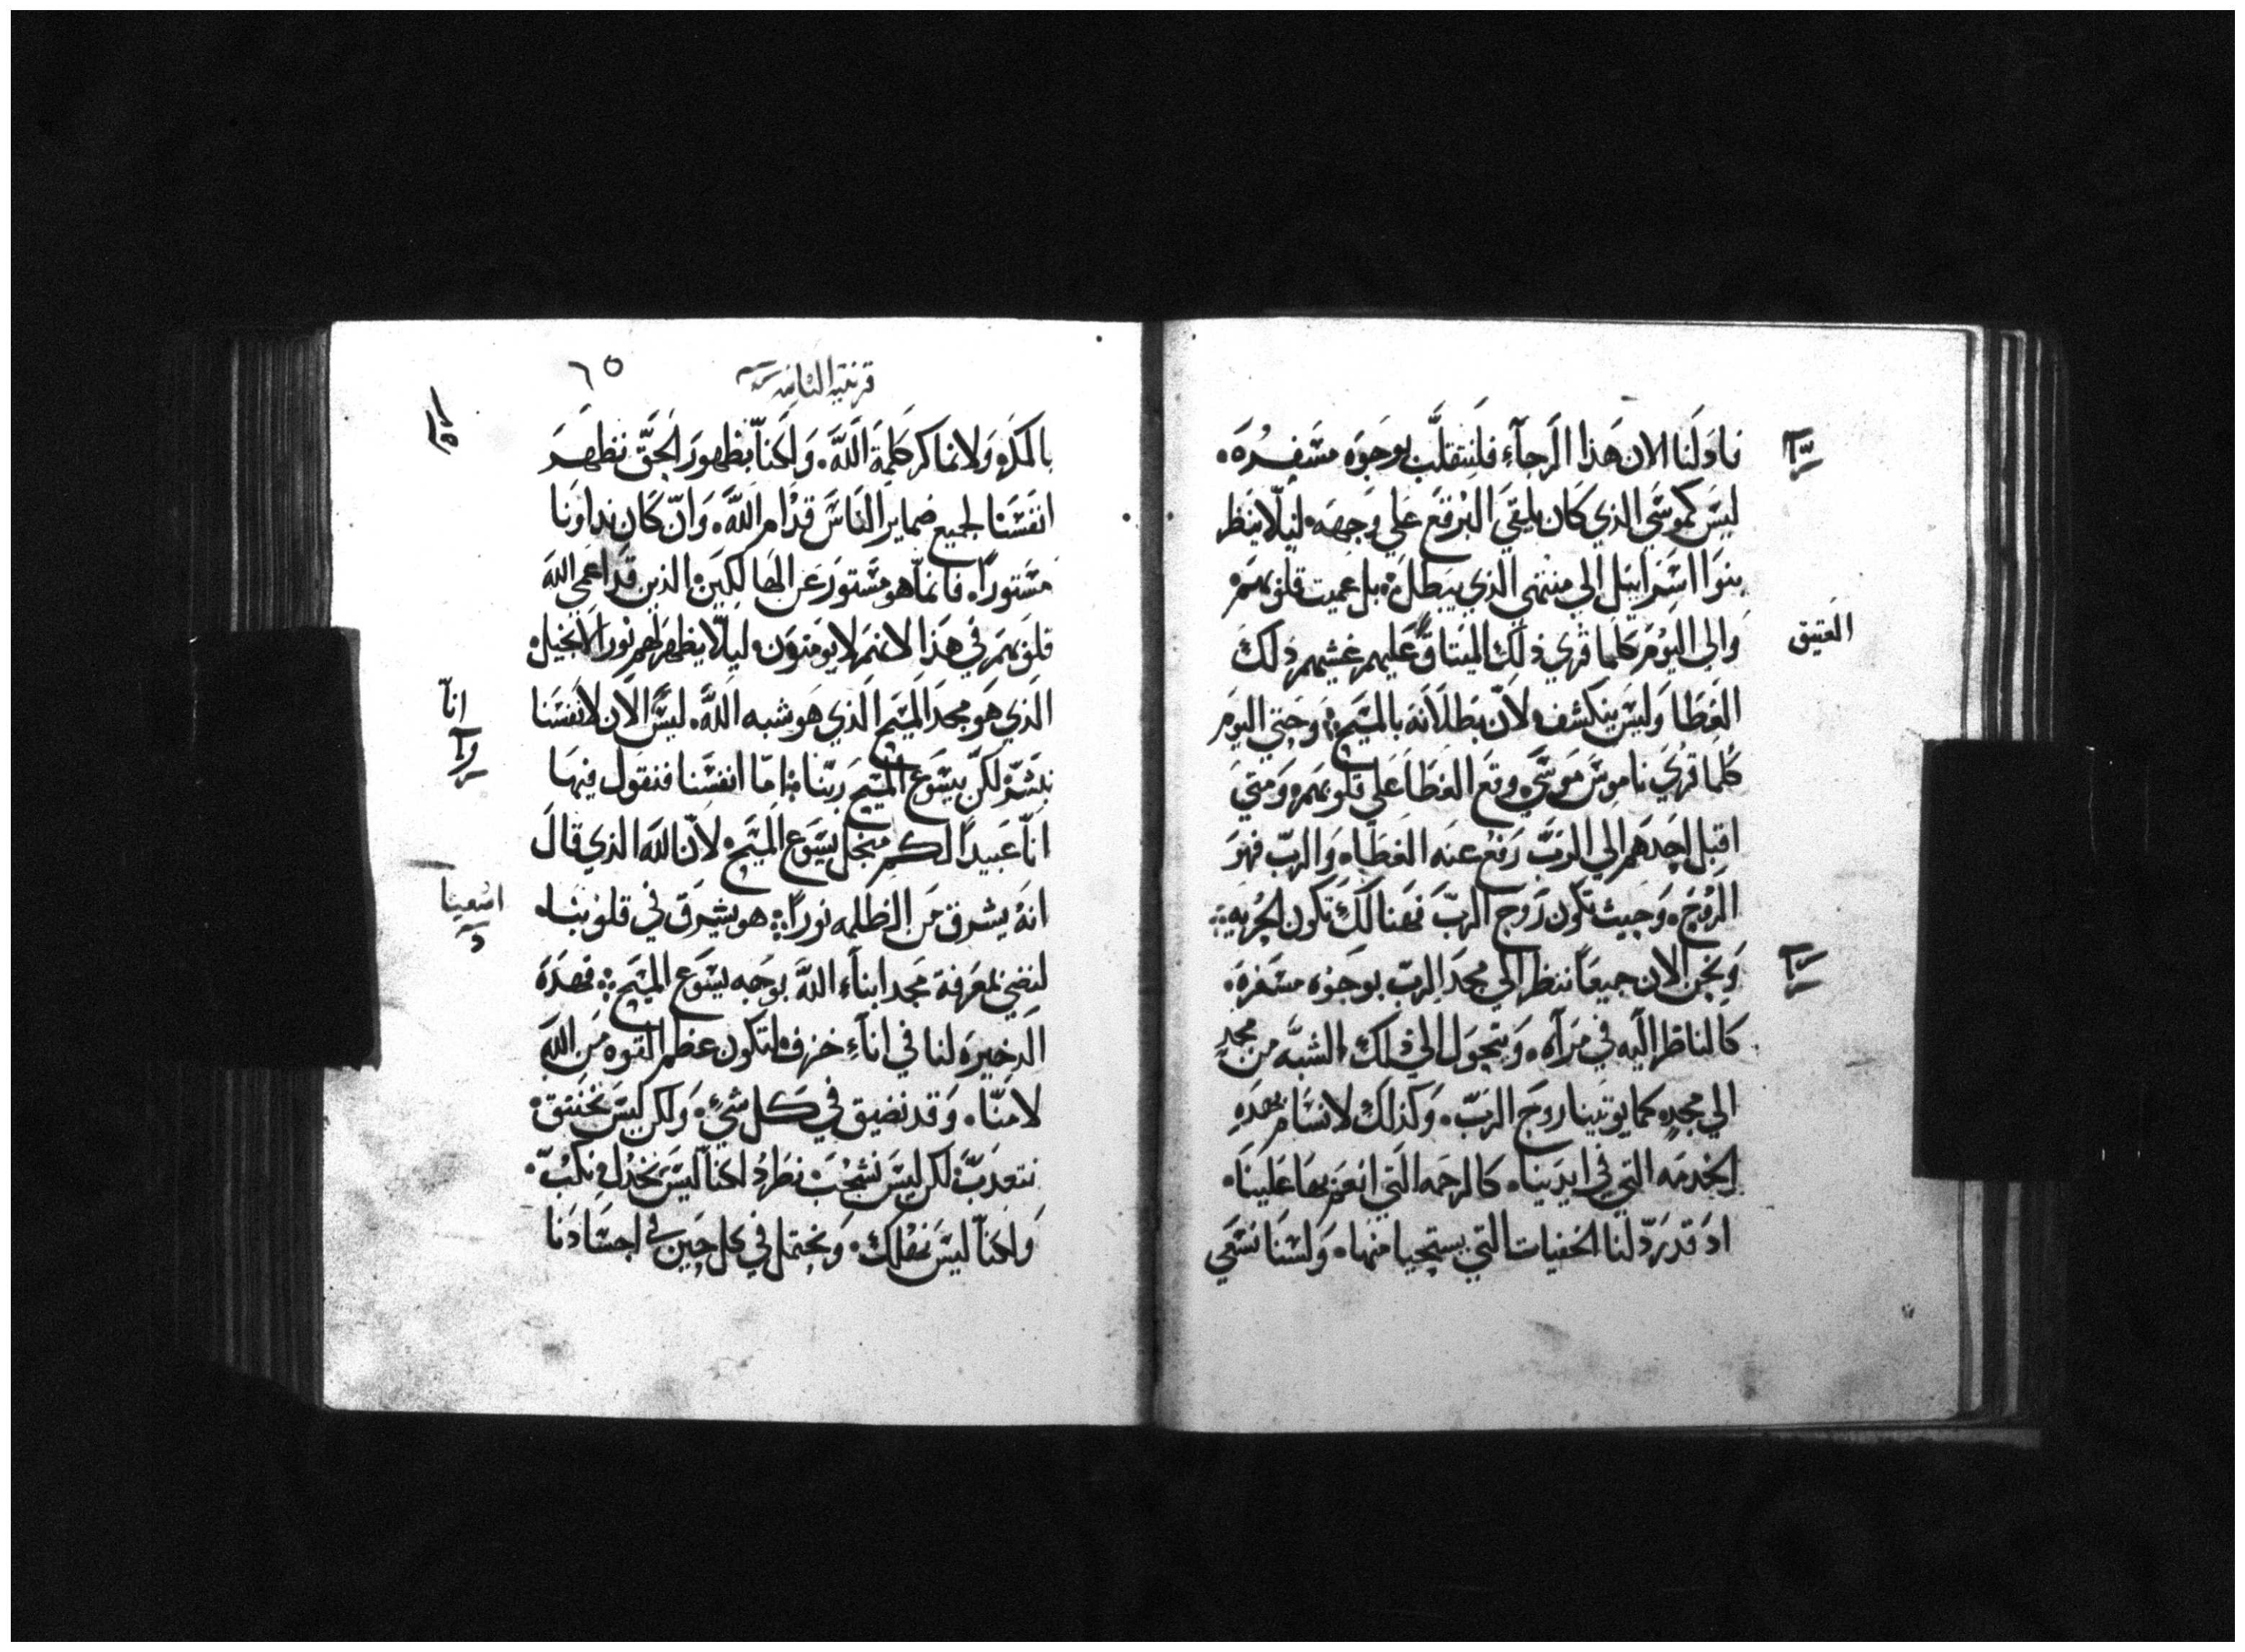 فاد لنا الان هذا الرجآء فلنتقلب بوجوه مسفره.
ليس كموسي الذي كان يلقي البرقع علي وجهه ليلا ينظر
بنوا اسراييل الي منتهي الذي يبطل. بل عميت قلوبهم
والي اليوم كلما قري ذلك الميثاق عليهم غشيهم ذلك
العتيق
الغطا وليس ينكشف لان بطلانه بالمسيح: وحتي اليوم
كلما قري ناموس موسي وقع الغطا علي قلوبهم ومتي
اقبل احدهم الي الرب رفع عنه الغطاه والرب فهو
الروح. وحيث تكون روح الرب فهنالك تكون الحريه:
ونحن الان جميعا ننظر الي مجد الرب بوجوه مسفره.
كالناظر اليه في مرآه. ونتحول الي ذلك الشبه من مجد
الي مجد. كما يوتينا روح الرب. وكذلك لا نسام بهده
الخدمه التي في ايدينا. كالرحمه التي انعم بها علينا.
اد قد رد لنا الخفيات التي يستحيا منها. ولسنا نسعي
قرنتيه الثانيه
٦٥
بالمكر ولا نماكر كلمة الله. ولكنا بظهور الحق نظهر
انفسنا لجميع ضماير الناس قدام الله. وان كان نداونا
مستورا. فانما هو مستور عن الهالكين. الذين قد اعمي الله
قلوبهم في هذا لانهم لا يومنون. ليلا يظهر لهم نور الانجيل.
الذي هو مجد المسيح الذي هو شبه الله. ليس الان لانفسنا
انا
نبشر لكن بيسوع المسيح ربنا: اما انفسنا فنقول فيها
انا عبيدا لكم من اجل يسوع المسيح. لان الله الذي قال
انه يشرق من الظلمه نورا: هو يشرق في قلوبنا.
اشعيا
لنضي لمعرفة مجد ابناء الله بوجه يسوع المسيح: فهده
الدخيره لنا في انآء خزف. لتكون عظم القوه من الله
لا منا. وقد نضيق في كل شيء. ولكن ليس نختنق.
نتعدب لكن ليس نشجب نطرد لكنا ليس نخدل نكب.
ولكنا ليس نهلك. ونحتمل في كل حين في اجسادنا